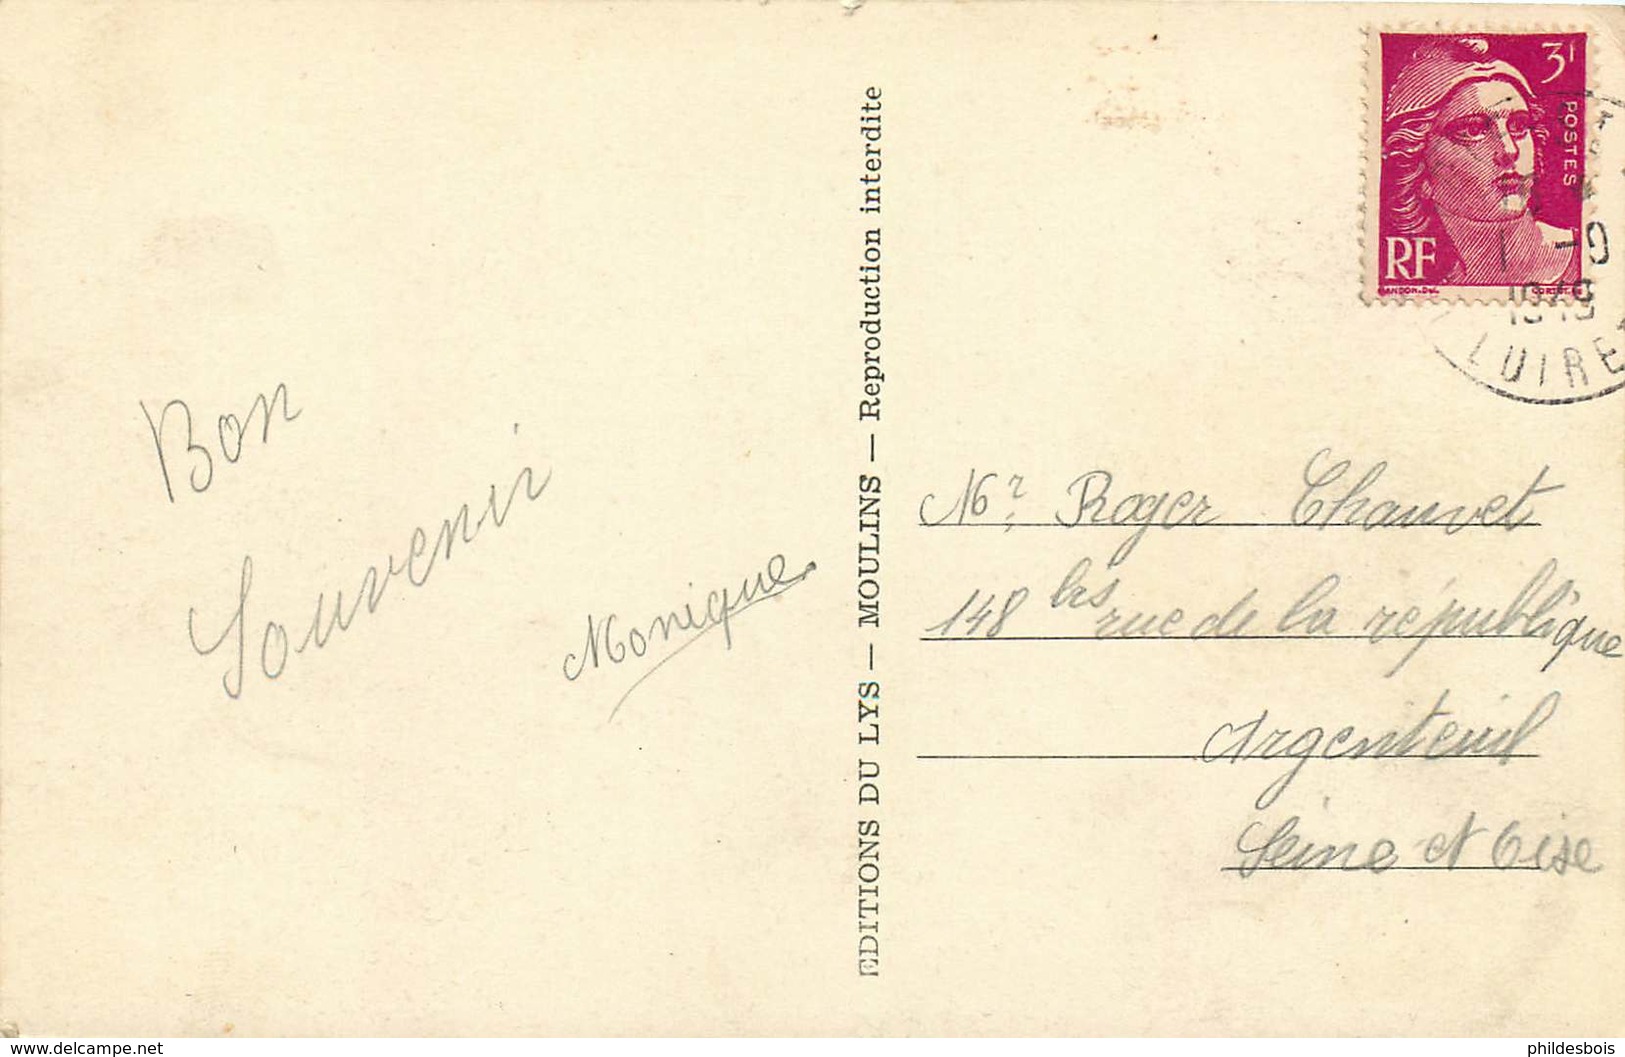 Bon
Souvenir
Monique
EDITIONS DU LYS — MOULINS — Reproduction interdite
3F
POSTES
RF
1 -9
1949
LOIRET
Mr Roger Chauvet
148 bis rue de la république
Argenteuil
Seine et Oise
www.delcampe.net
phildesbois